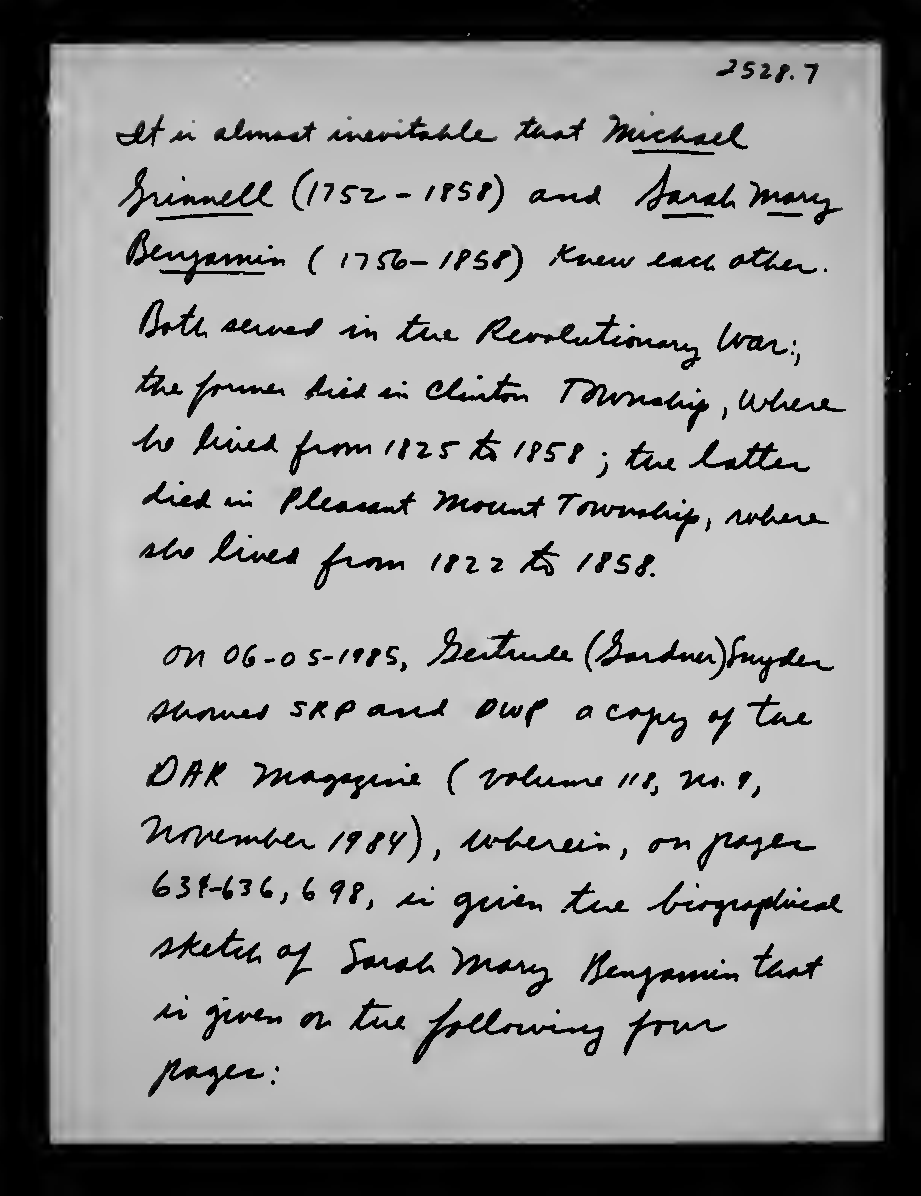 2528.7
It is almost inevitable that Michael
Grinnell (1752-1858) and Sarah Mary
Benjamin (1756-1858) knew each other.
Both served in the Revolutionary War:,
the former died in Clinton Township, where
he lived from 1825 to 1858; the latter
died in Pleasant Mount Township, where
she lived from 1822 to 1858.
On 06-05-1985, Gertrude (Gardner) Snyder
showed SRP and DWP a copy of the
DAR Magazine (volume 118, no. 9,
November 1984), wherein, on pages
634-636, 698, is given the biographical
sketch of Sarah Mary Benjamin that
is given on the following four
pages: